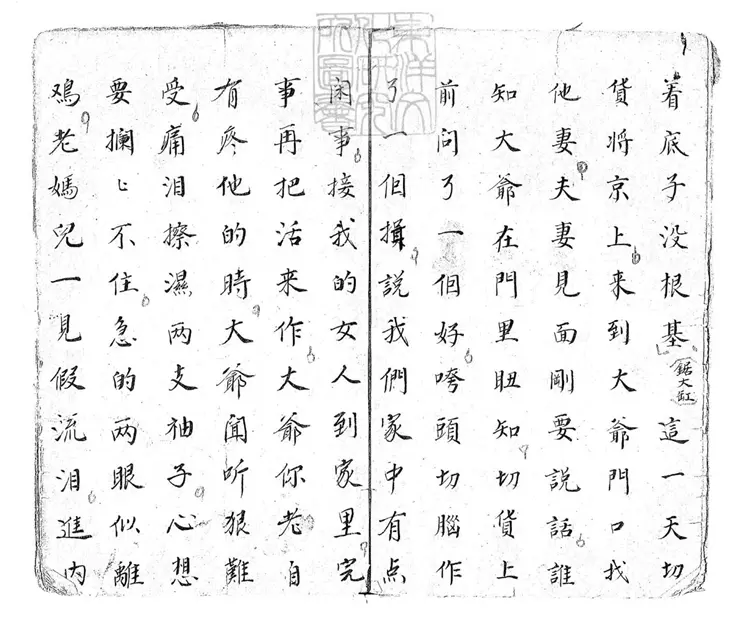 着底子没根基 鋸大缸 這一天切
貨将京上来到大爺門口找
他妻夫妻見面剛要說話誰
知大爺在門里知切貨上
前问了一個好咵頭切腦作
了一個揖說我們家中有点
闲事接我的女人到家里完
事再把活来作大爺你老自
有疼他的時大爺闻听狠難
受痛泪擦濕两支袖子心想
要攔〻不住急的两眼似離
鸡老媽兒一見假流泪進内